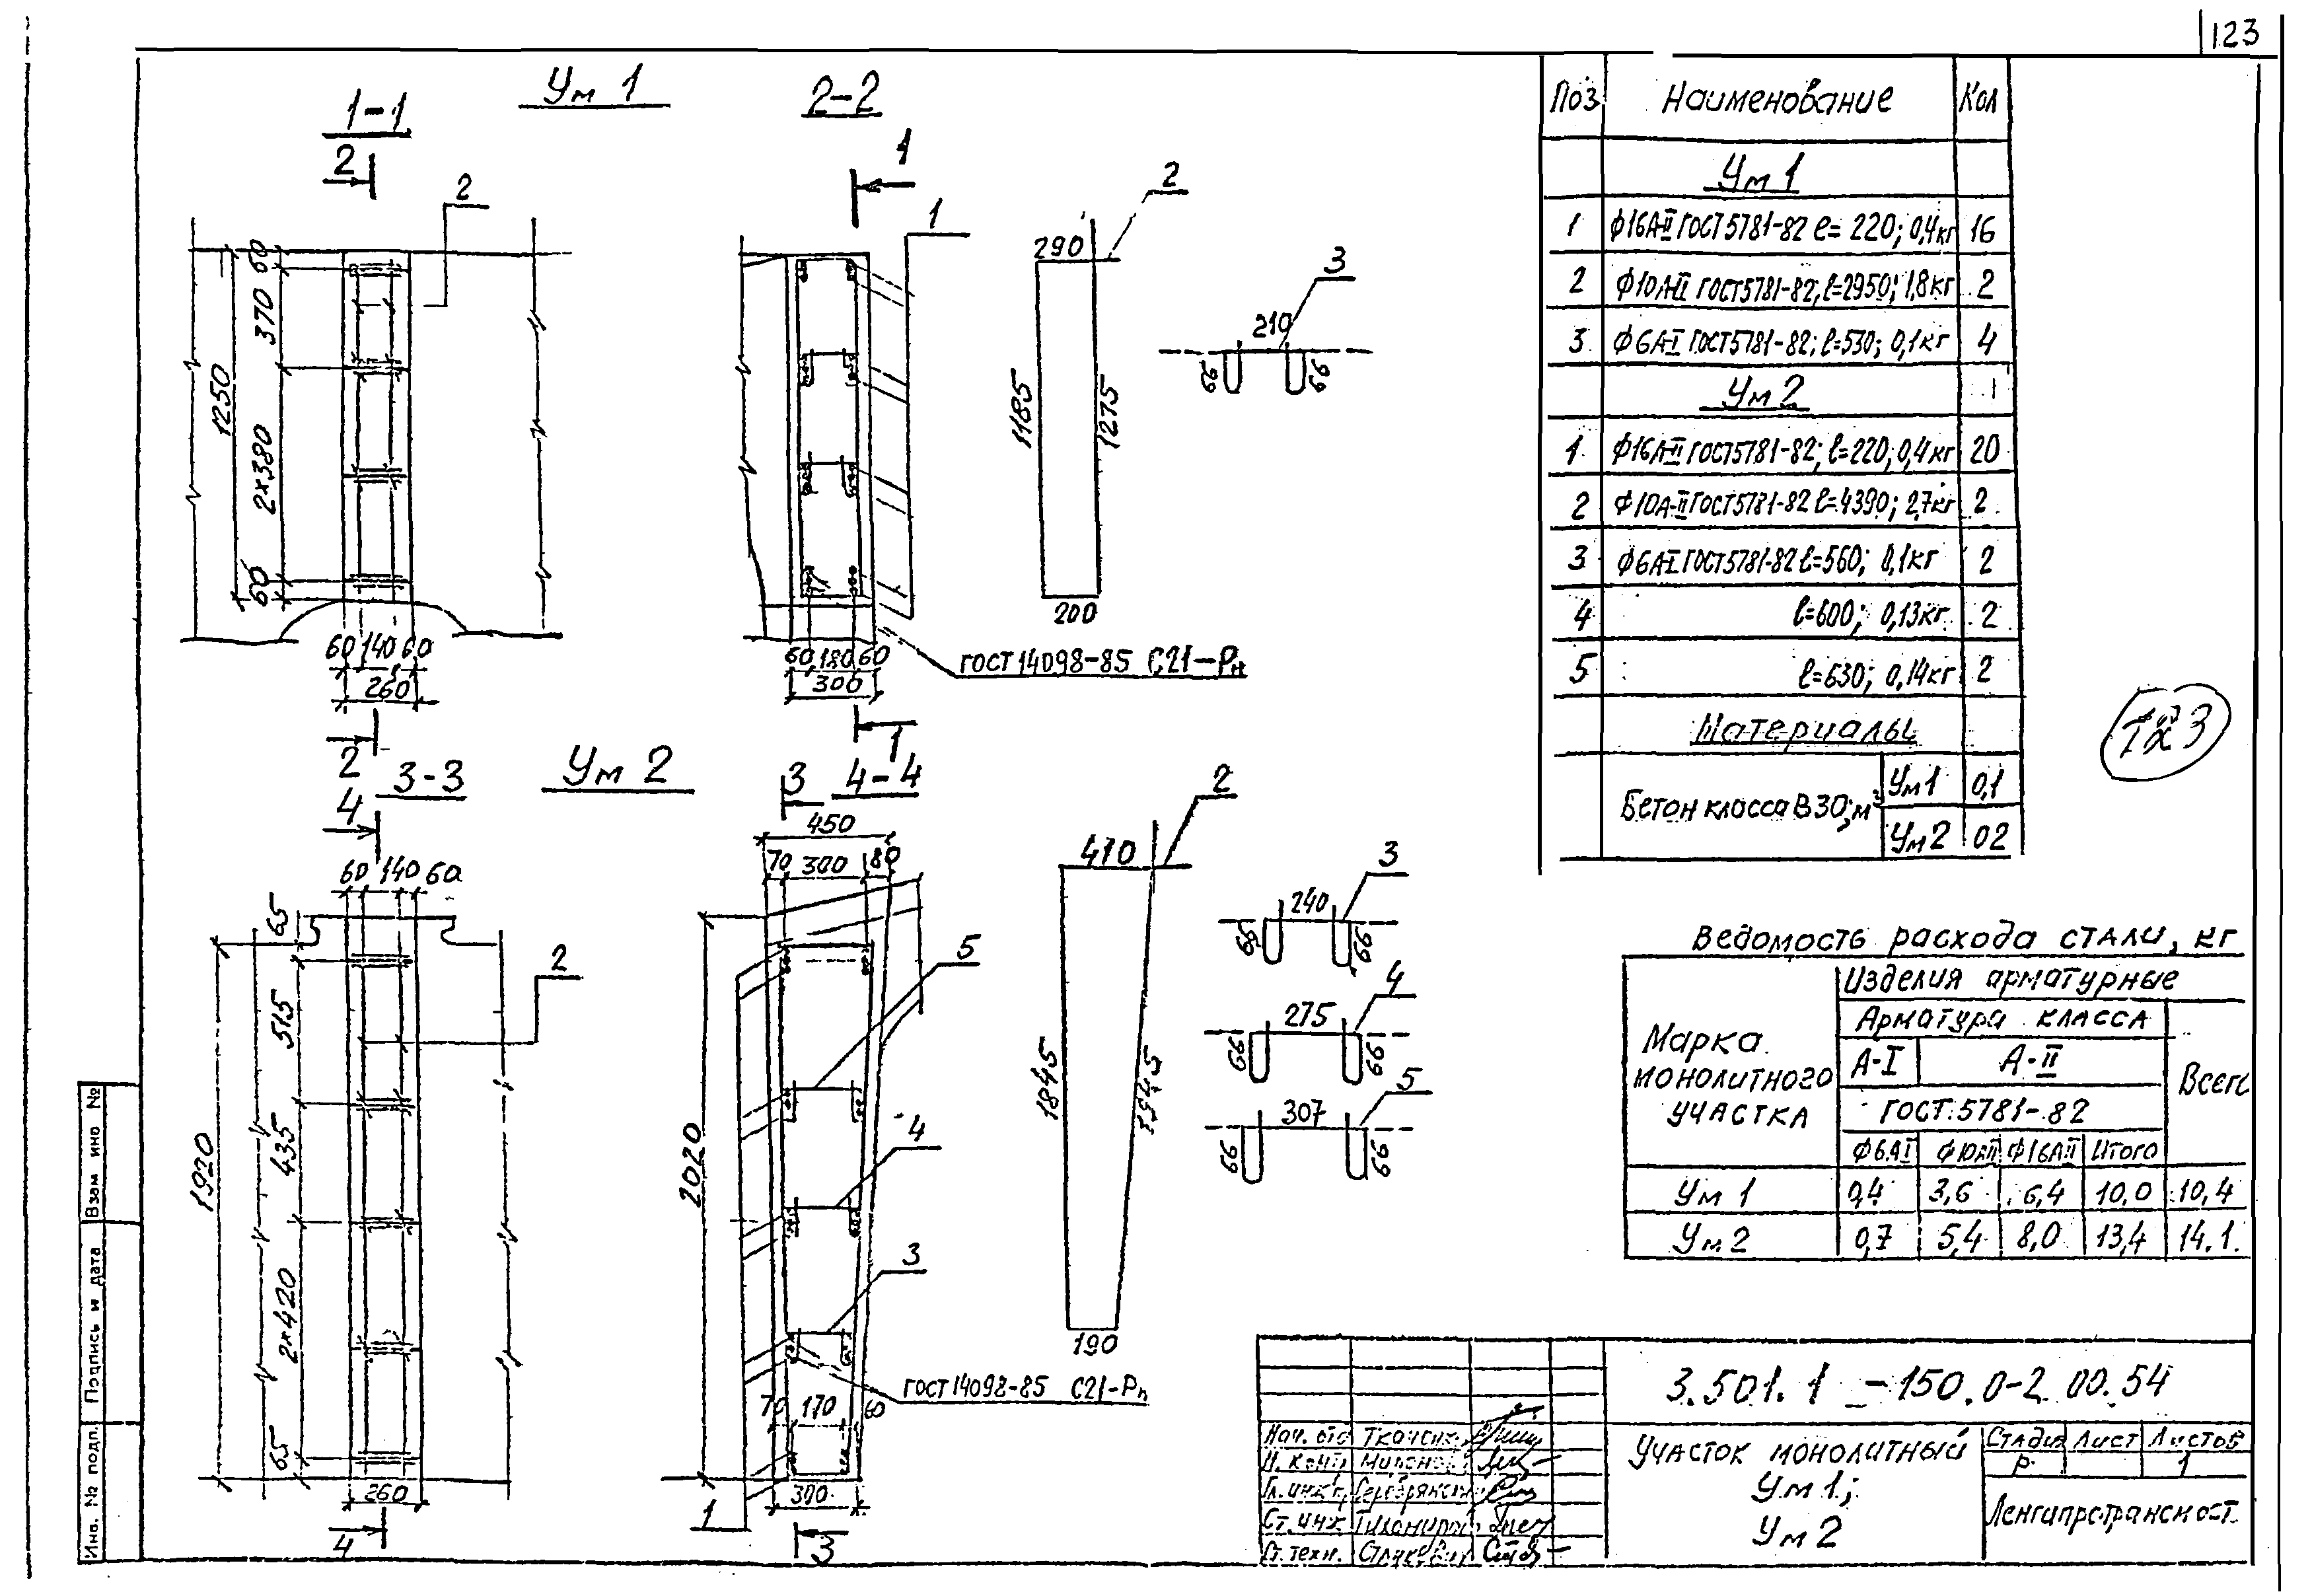 123
Ум 1
1-1
2-2
2
2
1
1
2
290
1185
1275
200
3
210
66
66
60
370
1250
2×380
60
60 140 60
260
60 180 60
300
ГОСТ 14098-85 С21-Рн
2
1
Ум 2
3-3
4-4
4
3
450
70 300 80
60 140 60
65
515
435
1920
2×420
65
260
2
4
5
4
3
2020
70 170 60
300
ГОСТ 14098-85 С21-Рн
1
3
2
410
1845
1945
190
3
240
66
66
4
275
66
66
5
307
66
66
Поз Наименование Кол
Ум 1
1 ф16А-II ГОСТ 5781-82 ℓ=220; 0,4кг 16
2 ф10А-II ГОСТ 5781-82; ℓ=2950; 1,8кг 2
3 ф6А-I ГОСТ 5781-82; ℓ=530; 0,1кг 4
Ум 2
1 ф16А-II ГОСТ 5781-82; ℓ=220; 0,4кг 20
2 ф10А-II ГОСТ 5781-82 ℓ=4390; 2,7кг 2
3 ф6А-I ГОСТ 5781-82 ℓ=560; 0,1кг 2
4 ℓ=600; 0,13кг 2
5 ℓ=630; 0,14кг 2
Материалы
Бетон класса В30; м³ Ум1 0,1
Ум2 02
123
Ведомость расхода стали, кг
Марка монолитного участка
Изделия арматурные
Арматура класса
А-I А-II
Всего
ГОСТ 5781-82
ф6АI ф10АII ф16АII Итого
Ум 1 0,4 3,6 6,4 10,0 10,4
Ум 2 0,7 5,4 8,0 13,4 14.1
3.501.1-150.0-2 00.54
Нач. отд
Н. конт.
Гл. инж. Серебрянский
Ст. инж
Ст. техн.
Участок монолитный
Ум 1;
Ум 2
Стадия Лист Листов
Р 1
Ленгипротрансмост
Инв. № подл.
Подпись и дата
Взам инв №